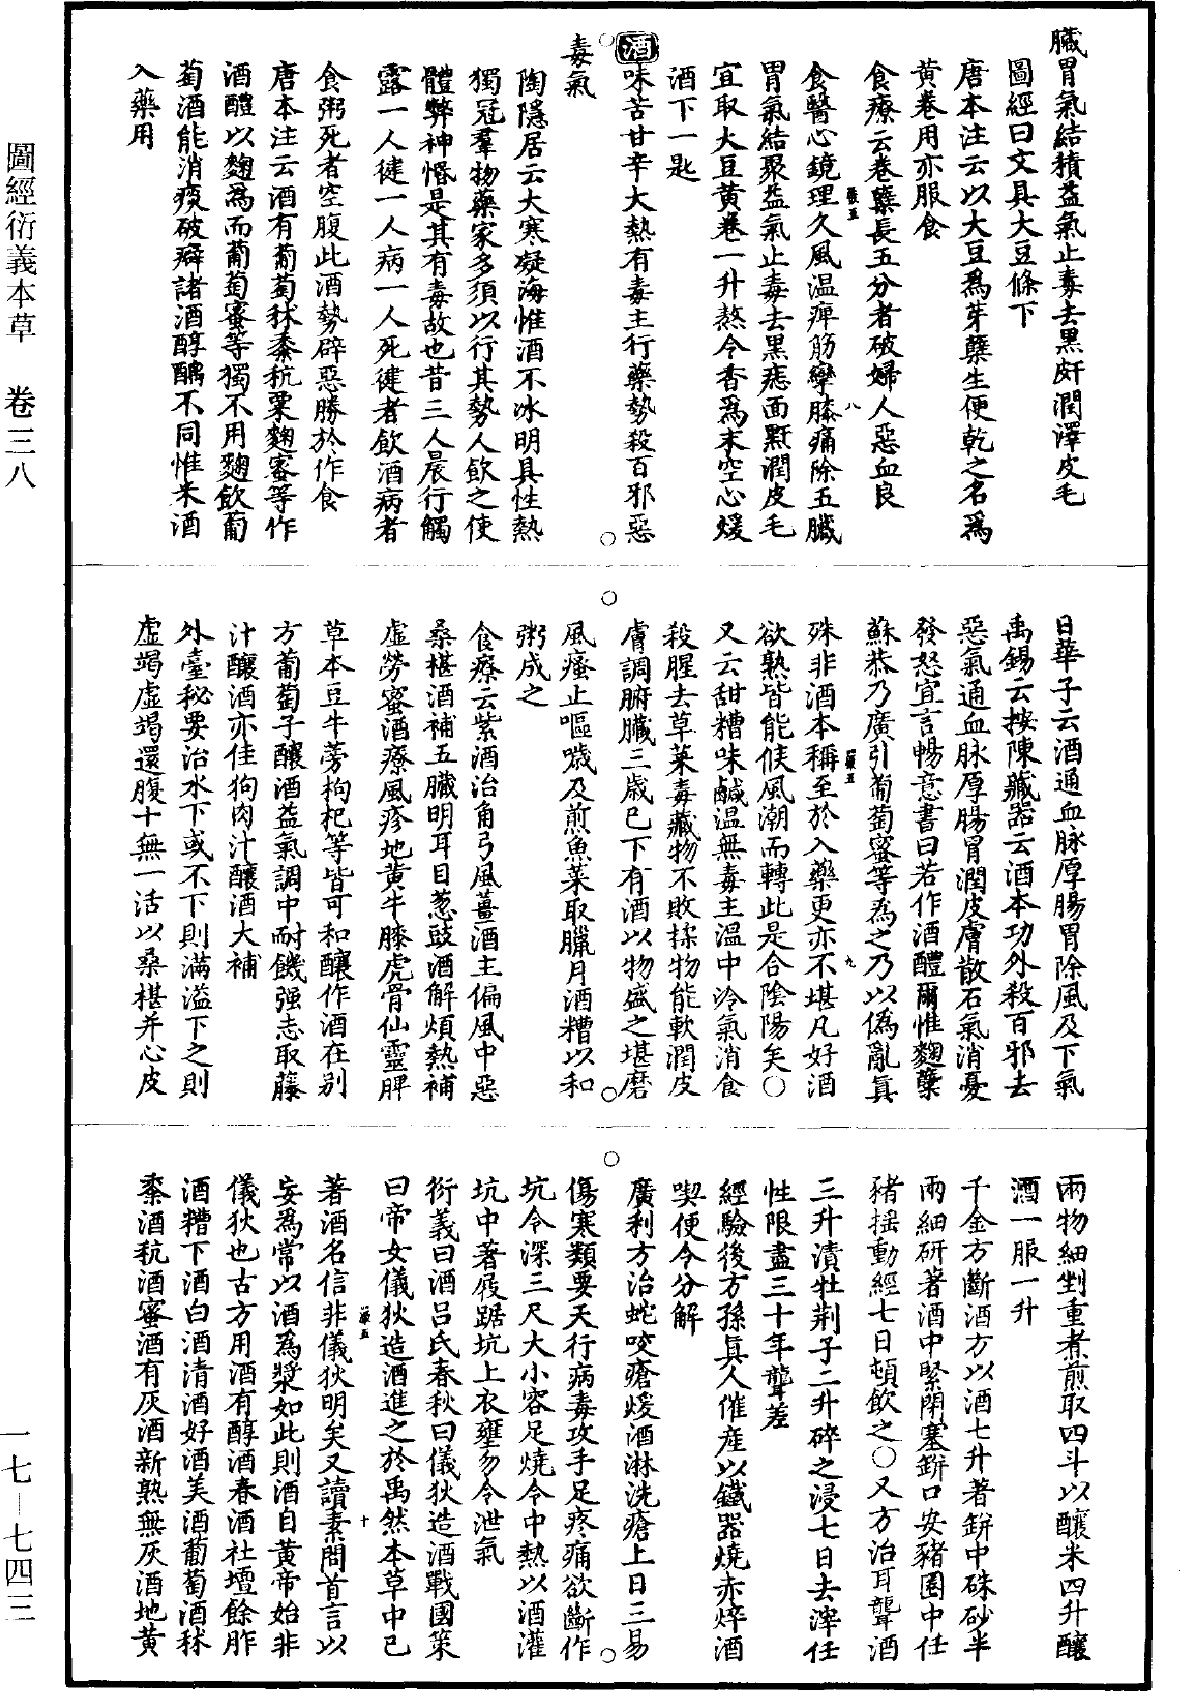 臟胃氣結積益氣止毒去黑皯潤澤皮毛
圖經曰文具大豆條下
唐本注云以大豆爲芽櫱生便乾之名爲
黃卷用亦服食
食療云卷櫱長五分者破婦人惡血良
食醫心鏡理久風温痺筋攣膝痛除五臟
胃氣結聚益氣止毒去黑痣面䵟潤皮毛
宜取大豆黃卷一升熬令香爲末空心煖
酒下一匙
酒味苦甘辛大熱有毒主行藥勢殺百邪惡
毒氣
陶隱居云大寒凝海惟酒不冰明具性熱
獨冠羣物藥家多須以行其勢人飲之使
體弊神惛是其有毒故也昔三人晨行觸
露一人健一人病一人死健者飲酒病者
食粥死者空腹此酒勢辟惡勝於作食
唐本注云酒有葡萄秫黍秔粟麴蜜等作
酒醴以麴爲而葡萄蜜等獨不用麴飲葡
萄酒能消痰破癖諸酒醇醨不同惟米酒
入藥用
日華子云酒通血脉厚腸胃除風及下氣
禹錫云按陳藏器云酒本功外殺百邪去
惡氣通血脉厚腸胃潤皮膚散石氣消憂
發怒宜言暢意書曰若作酒醴爾惟麴櫱
蘇恭乃廣引葡萄蜜等爲之乃以僞亂眞
殊非酒本稱至於入藥更亦不堪凡好酒
欲熟皆能候風潮而轉此是合陰陽矣〇
又云甜糟味鹹温無毒主温中冷氣消食
殺腥去草菜毒藏物不敗揉物能軟潤皮
膚調腑臟三歲已下有酒以物盛之堪磨
風瘙止嘔噦及煎魚菜取臘月酒糟以和
粥成之
食療云紫酒治角弓風薑酒主偏風中惡
桑椹酒補五臟明耳目葱豉酒解煩熱補
虛勞蜜酒療風疹地黃牛膝虎骨仙靈脾
草本豆牛蒡枸杞等皆可和釀作酒在別
方葡萄子釀酒益氣調中耐饑强志取藤
汁釀酒亦佳狗肉汁釀酒大補
外臺秘要治水下或不下則滿溢下之則
虛竭虛竭還腹十無一活以桑椹并心皮
兩物細剉重煮煎取四斗以釀米四升釀
酒一服一升
千金方斷酒方以酒七升著缾中硃砂半
兩細研著酒中緊閉塞缾口安豬圈中任
豬搖動經七日頓飲之〇又方治耳聾酒
三升漬牡荆子二升碎之浸七日去滓任
性限盡三十年聾差
經驗後方孫眞人催産以鐵器燒赤焠酒
喫便令分解
廣利方治蛇咬瘡煖酒淋洗瘡上日三易
傷寒類要天行病毒攻手足疼痛欲斷作
坑令深三尺大小容足燒令中熱以酒灌
坑中著屐踞坑上衣壅勿令泄氣
衍義曰酒呂氏春秋曰儀狄造酒戰國策
曰帝女儀狄造酒進之於禹然本草中已
著酒名信非儀狄明矣又讀素問首言以
妄爲常以酒爲漿如此則酒自黃帝始非
儀狄也古方用酒有醇酒春酒社壇餘胙
酒糟下酒白酒清酒好酒美酒葡萄酒秫
黍酒秔酒蜜酒有灰酒新熟無灰酒地黃
圖經衍義本草 卷三八
一七—七四三